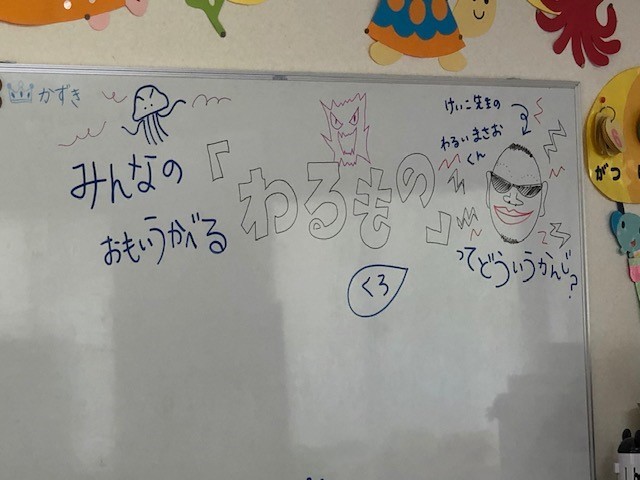 かずき
けいこ先生の
わるいまさお
くん
みんなの
「わるもの」
おもいうかべる
ってどういうかんじ?
くろ
がつ